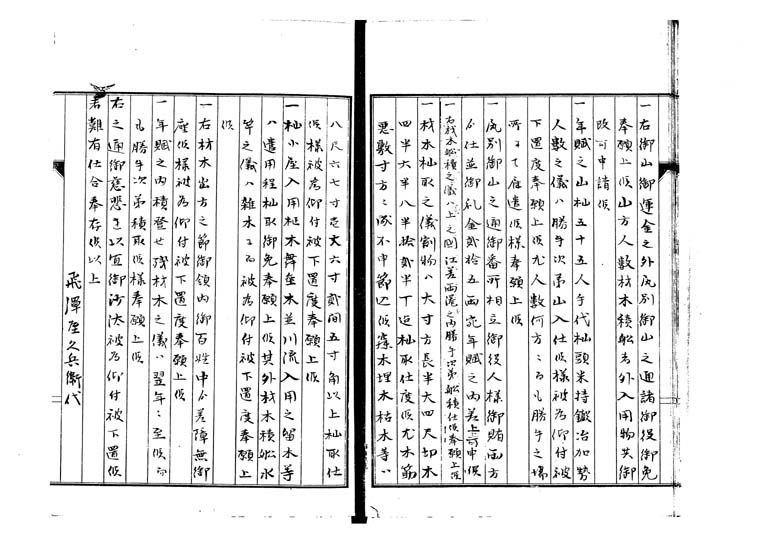 一右御山御運金之外尻別御山之通諸御役御免
奉願上候山方人数材木積船当外入用物共御
改可申請候
一年賦之山杣五十五人手代杣頭米持鍛冶加勢
人数之儀ハ勝手次第山入仕候様被為仰付被
下置度奉願上候尤人数何方ニ而も勝手之場
所ニて雇遣候様奉願上候
一尻別御山之通御番所相立御役人様御賄両方
ゟ仕並御礼金弐拾五両宛年賦之内差上可申候
一右材木船積之儀ハ上之国江差両湊之内勝手次第船積仕候奉願上候
一材木杣取之儀割物ハ大寸方長半大四尺切木
四半六半八半拾弐半丁迄杣取仕度候尤木筋
悪敷寸方ニ応不申節ハ候寐木埋木枯木等ハ
八尺六七寸壱丈六寸弐間五寸角以上杣取仕
候様被為仰付被下置度奉願上候
一杣小屋入用杣木舞垂木並川流入用之留木等
ハ遣用程杣取御免奉願上候其外材木積船水
竿之儀ハ雑木ニ而被為仰付被下置度奉願上
候
一右材木出方之節御領内御百姓中ゟ差障無御
座候様被為仰付被下置度奉願上候
一年賦之内積登せ残材木之儀ハ翌年ニ至候而
も勝手次第積取候様奉願上候
右之通御慈悲を以宜御沙汰被為仰付被下置候
者難有仕合奉存候以上
飛澤屋久兵衛代